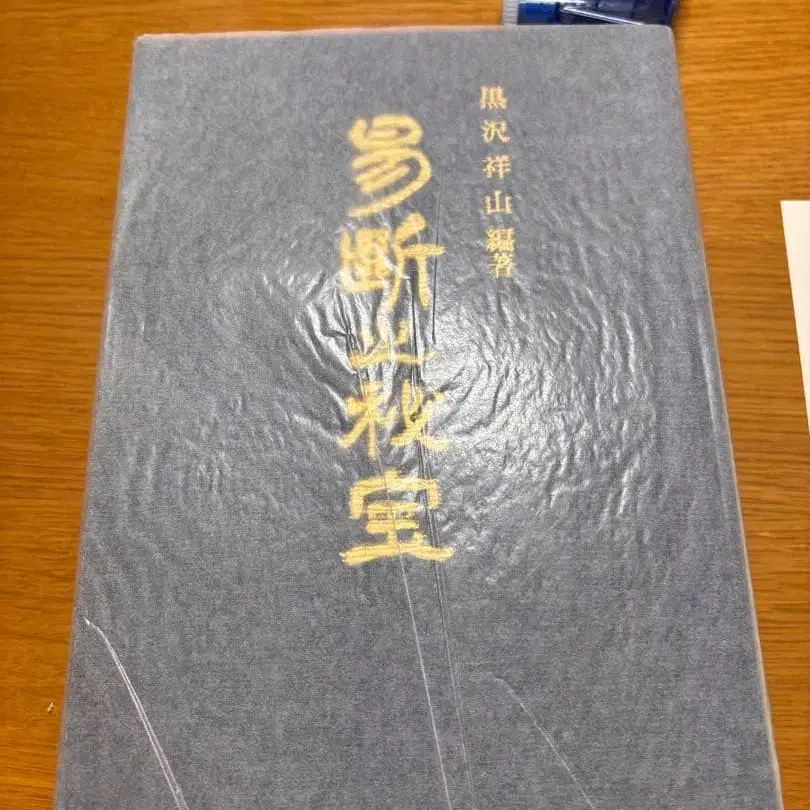 黒沢祥山編著
易断之秘宝